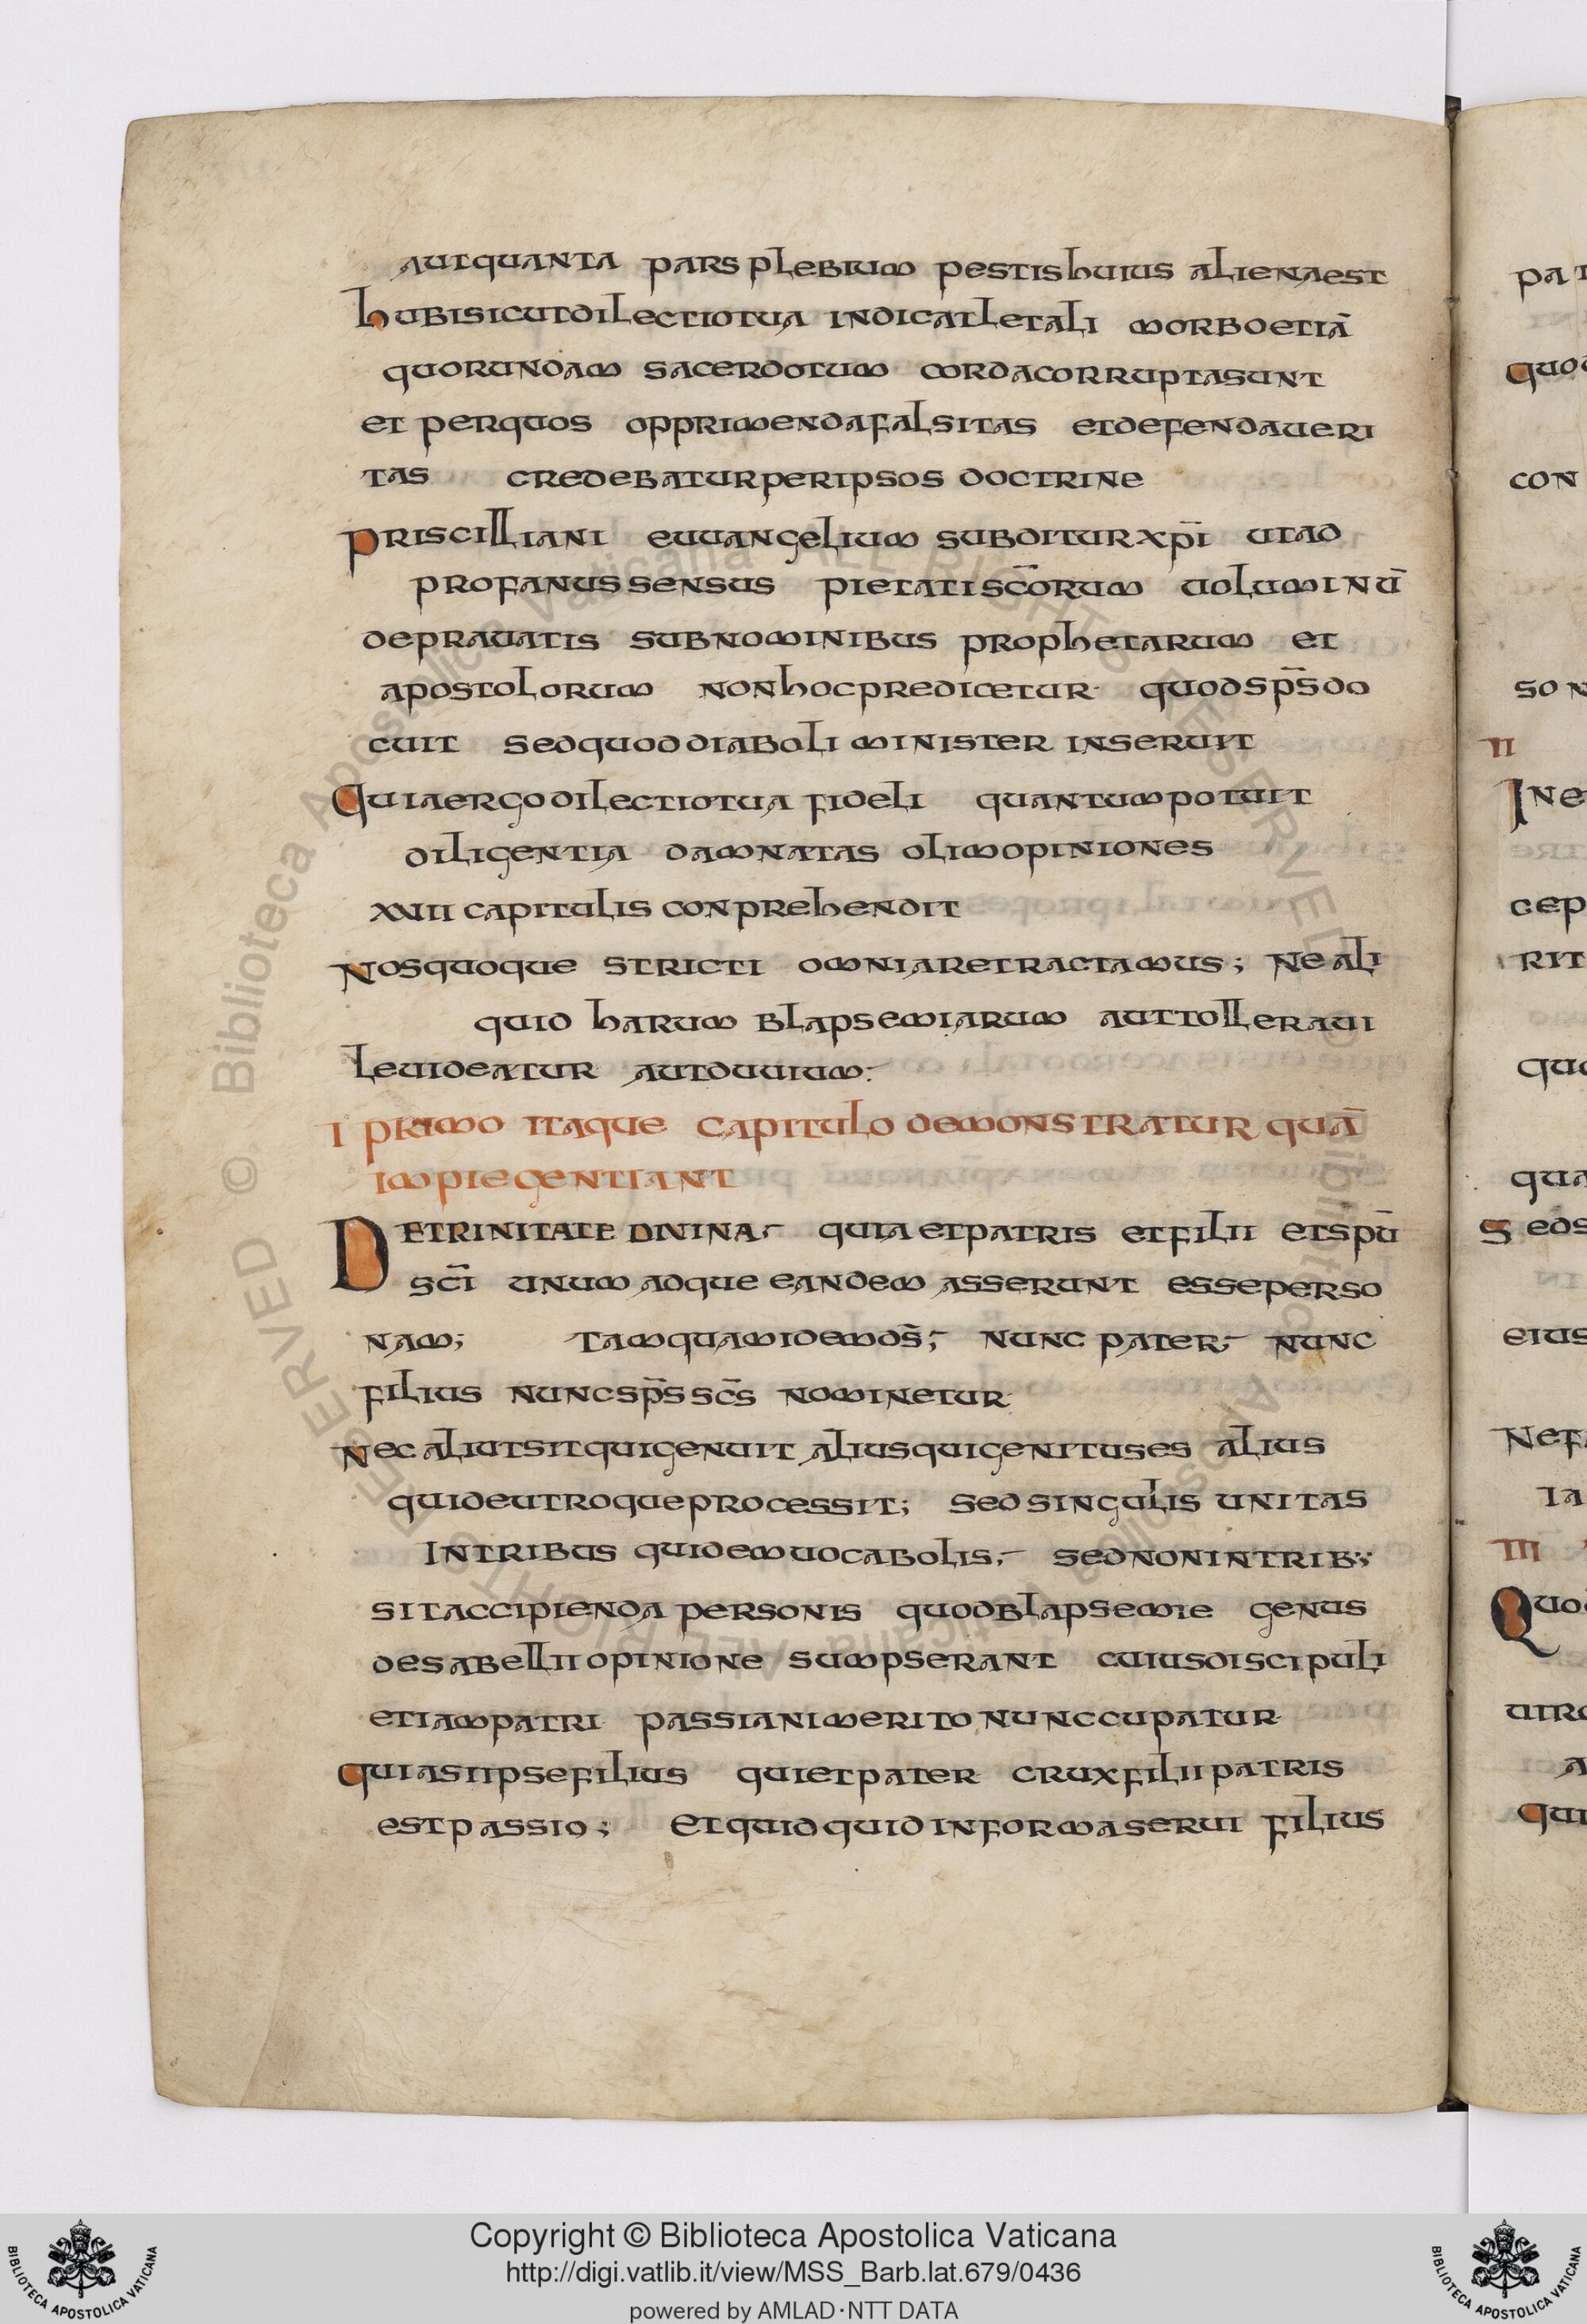 aut quanta pars plebium pestis huius aliena est
hubi sicut dilectio tua indicat letali morbo etiā
quorundam sacerdotum corda corrupta sunt
et per quos opprimenda falsitas et defenda ueri
tas credebatur per ipsos doctrine
priscilliani euuangelium subditur xp̄i ut ad
profanus sensus pietati sc̄orum uoluminū
deprauatis sub nominibus prophetarum et
apostolorum non hoc predicetur quod sp̄s do
cuit sed quod diaboli minister inseruit
Quia ergo dilectio tua fideli quantum potuit
diligentia damnatas olim opiniones
xviii capitulis conprehendit
Nos quoque stricti omnia retractamus; Ne ali
quid harum blapsemiarum aut tolleraui
le uideatur aut duuium:
I primo itaque capitulo demonstratur quā
impie sentiant
De trinitate divina quia et patris et filii et spū
sc̄i unum adque eandem asserunt esse perso
nam; Tamquam idem ds̄; nunc pater nunc
filius nunc sp̄s sc̄s nominetur
Nec aliut sit qui genuit alius qui genitus es alius
qui de utroque processit; sed singulis unitas
in tribus quidem uocabolis, sed non in trib;
sit accipienda personis quod blapsemie genus
de sabellii opinione sumpserant cuius discipuli
etiam patri passiani merito nunccupatur
quia si ipse filius qui et pater crux filii patris
est passio; Et quidquid in forma serui filius
pa
quo
con
so n
II
In e
cep
rit
qu
qua
S eds
eius
Nef
ia
III
Quo
utro
a
qui
Copyright © Biblioteca Apostolica Vaticana
http://digi.vatlib.it/view/MSS_Barb.lat.679/0436
powered by AMLAD·NTT DATA
BIBLIOTECA APOSTOLICA VATICANA
BIBLIOTECA APOSTOLICA VATICANA
© Biblioteca Apostolica Vaticana ALL RIGHTS RESERVED
© Biblioteca Apostolica Vaticana ALL RIGHTS RESERVED